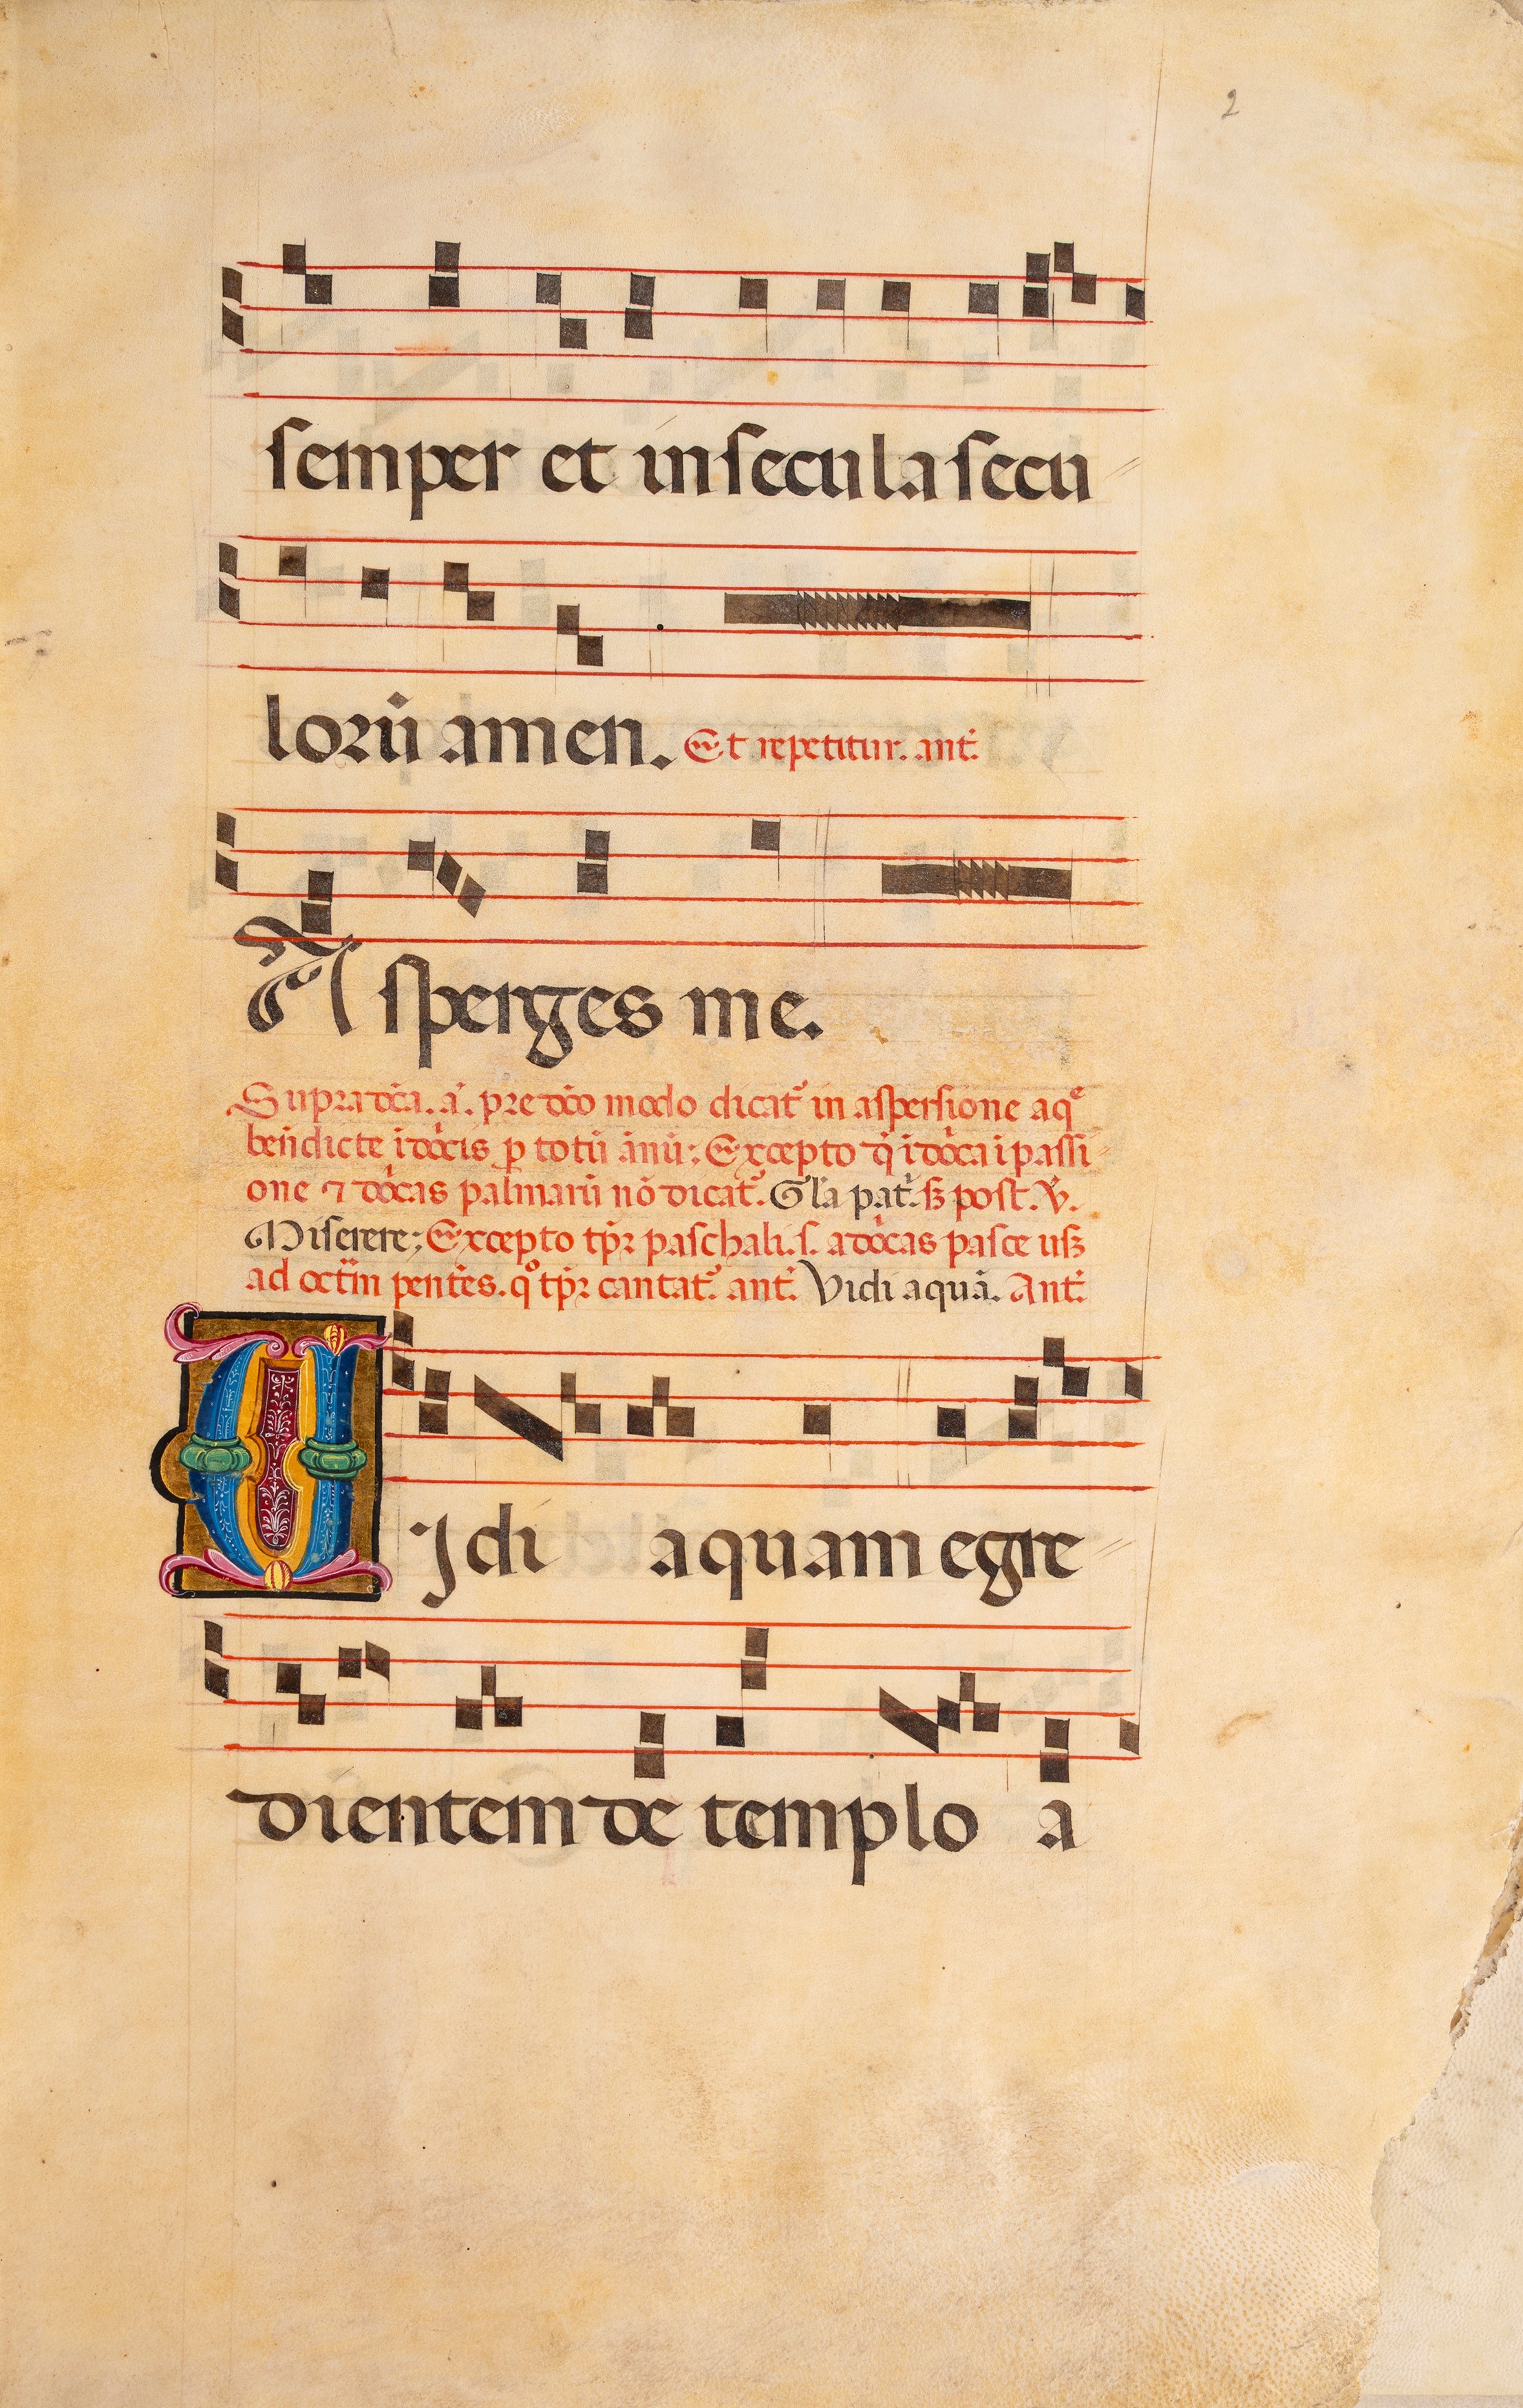 2
semper et in secula secu
lorū amen. Et repetitur. ant̄.
Asperges me.
Supradc̄a. a. predc̄o modo dicat᷑ in aspersione aq̄
ben̄dicte i dn̄icis p totū ānū: Excepto q̄ i dn̄ica i passi
one ⁊ dn̄icas palmarū nō dicat᷑. Gl'a pat᷑. sꝫ post. v̄.
Miserere: Excepto tp̄r paschali. s. a dn̄icas pasce usꝫ
ad octām pent̄es. qͦ tp̄r cantat᷑ ant̄. Vidi aquā. Ant̄.
VJdi aquam egre
dientem de templo a